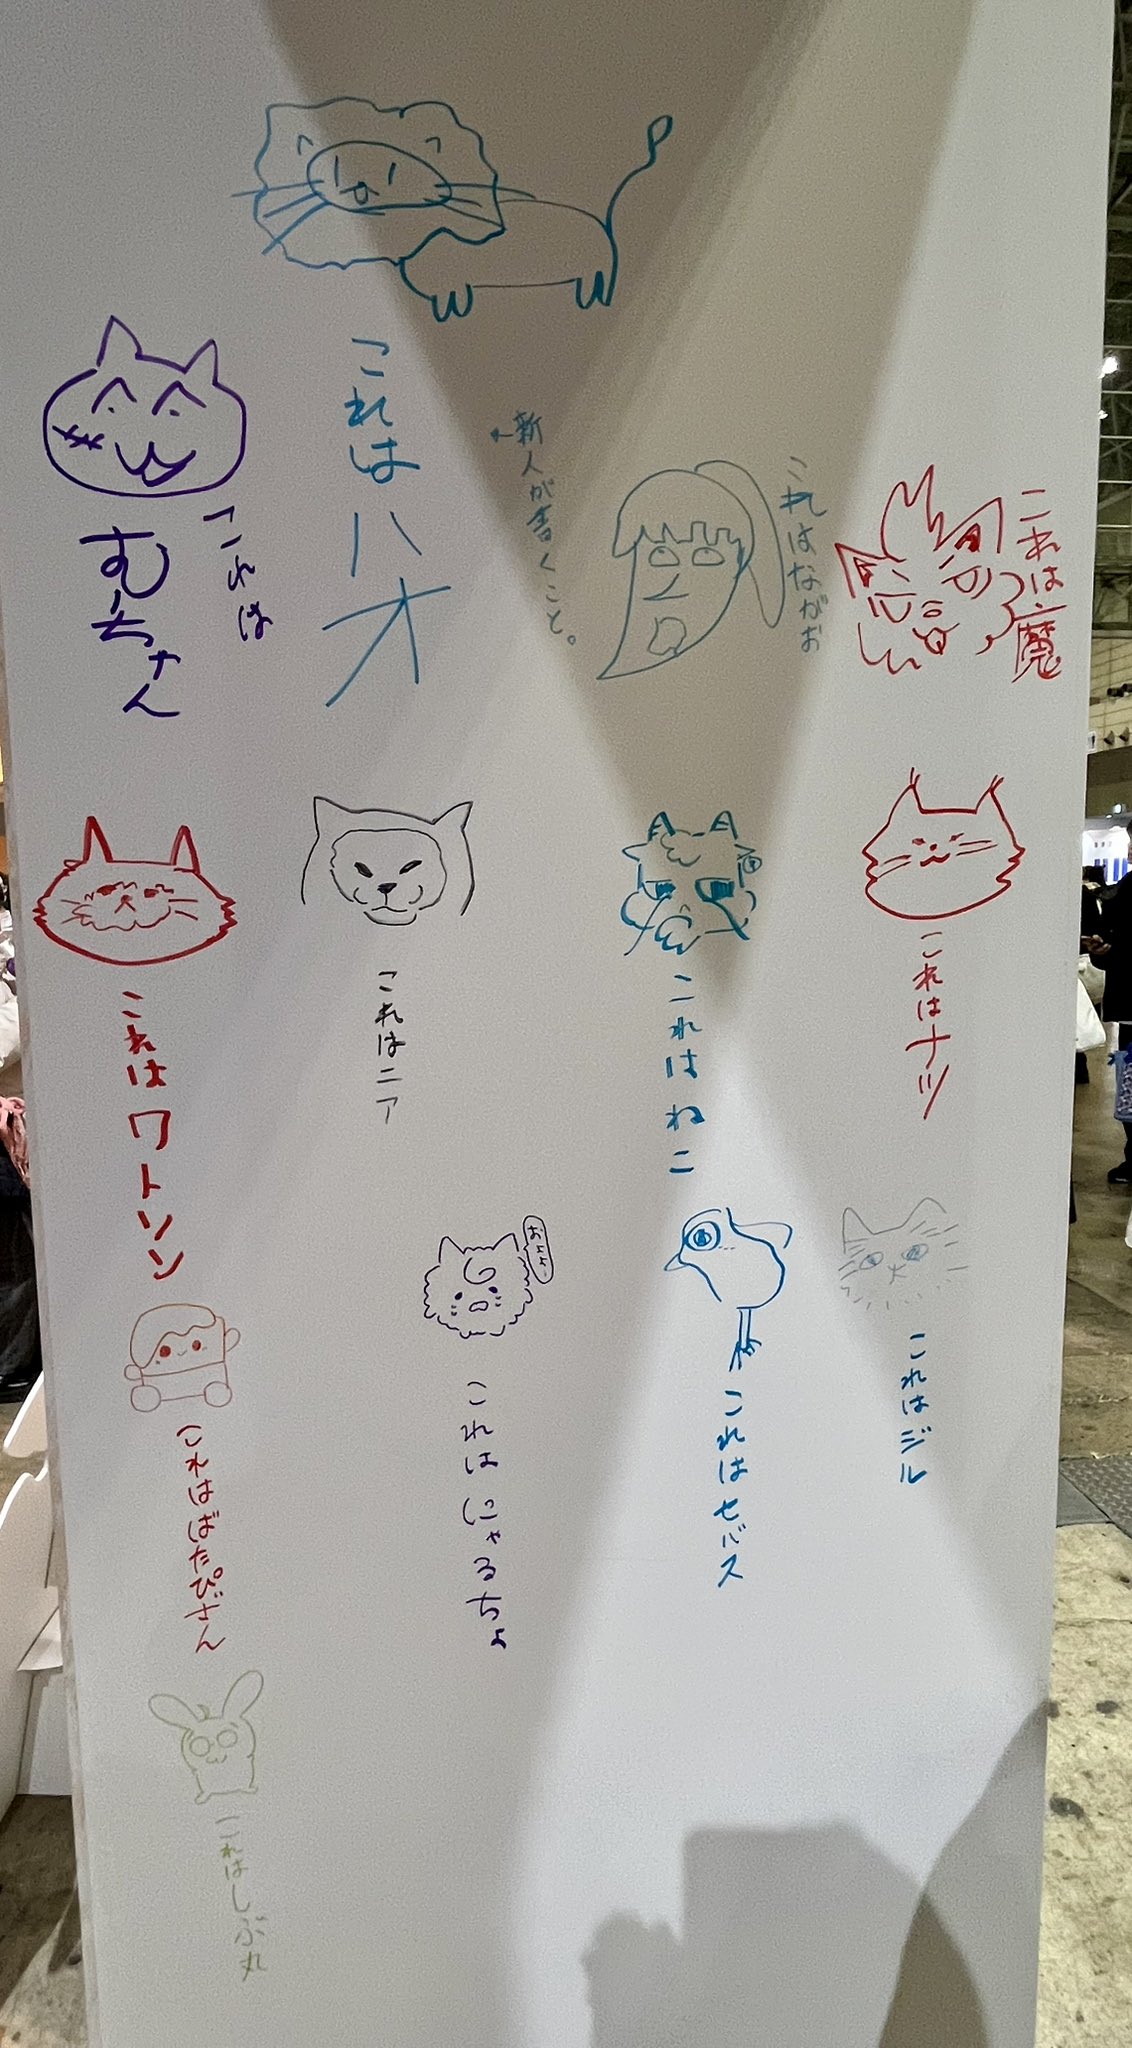 これは魔
これはながお
←新人が書くこと。
これはハオ
これは
むーちゃん
これはナツ
これはねこ
これはニア
これはワトソン
これはジル
これはセバス
これはにゃるちょ
これはばたぴさん
これはしぶ丸